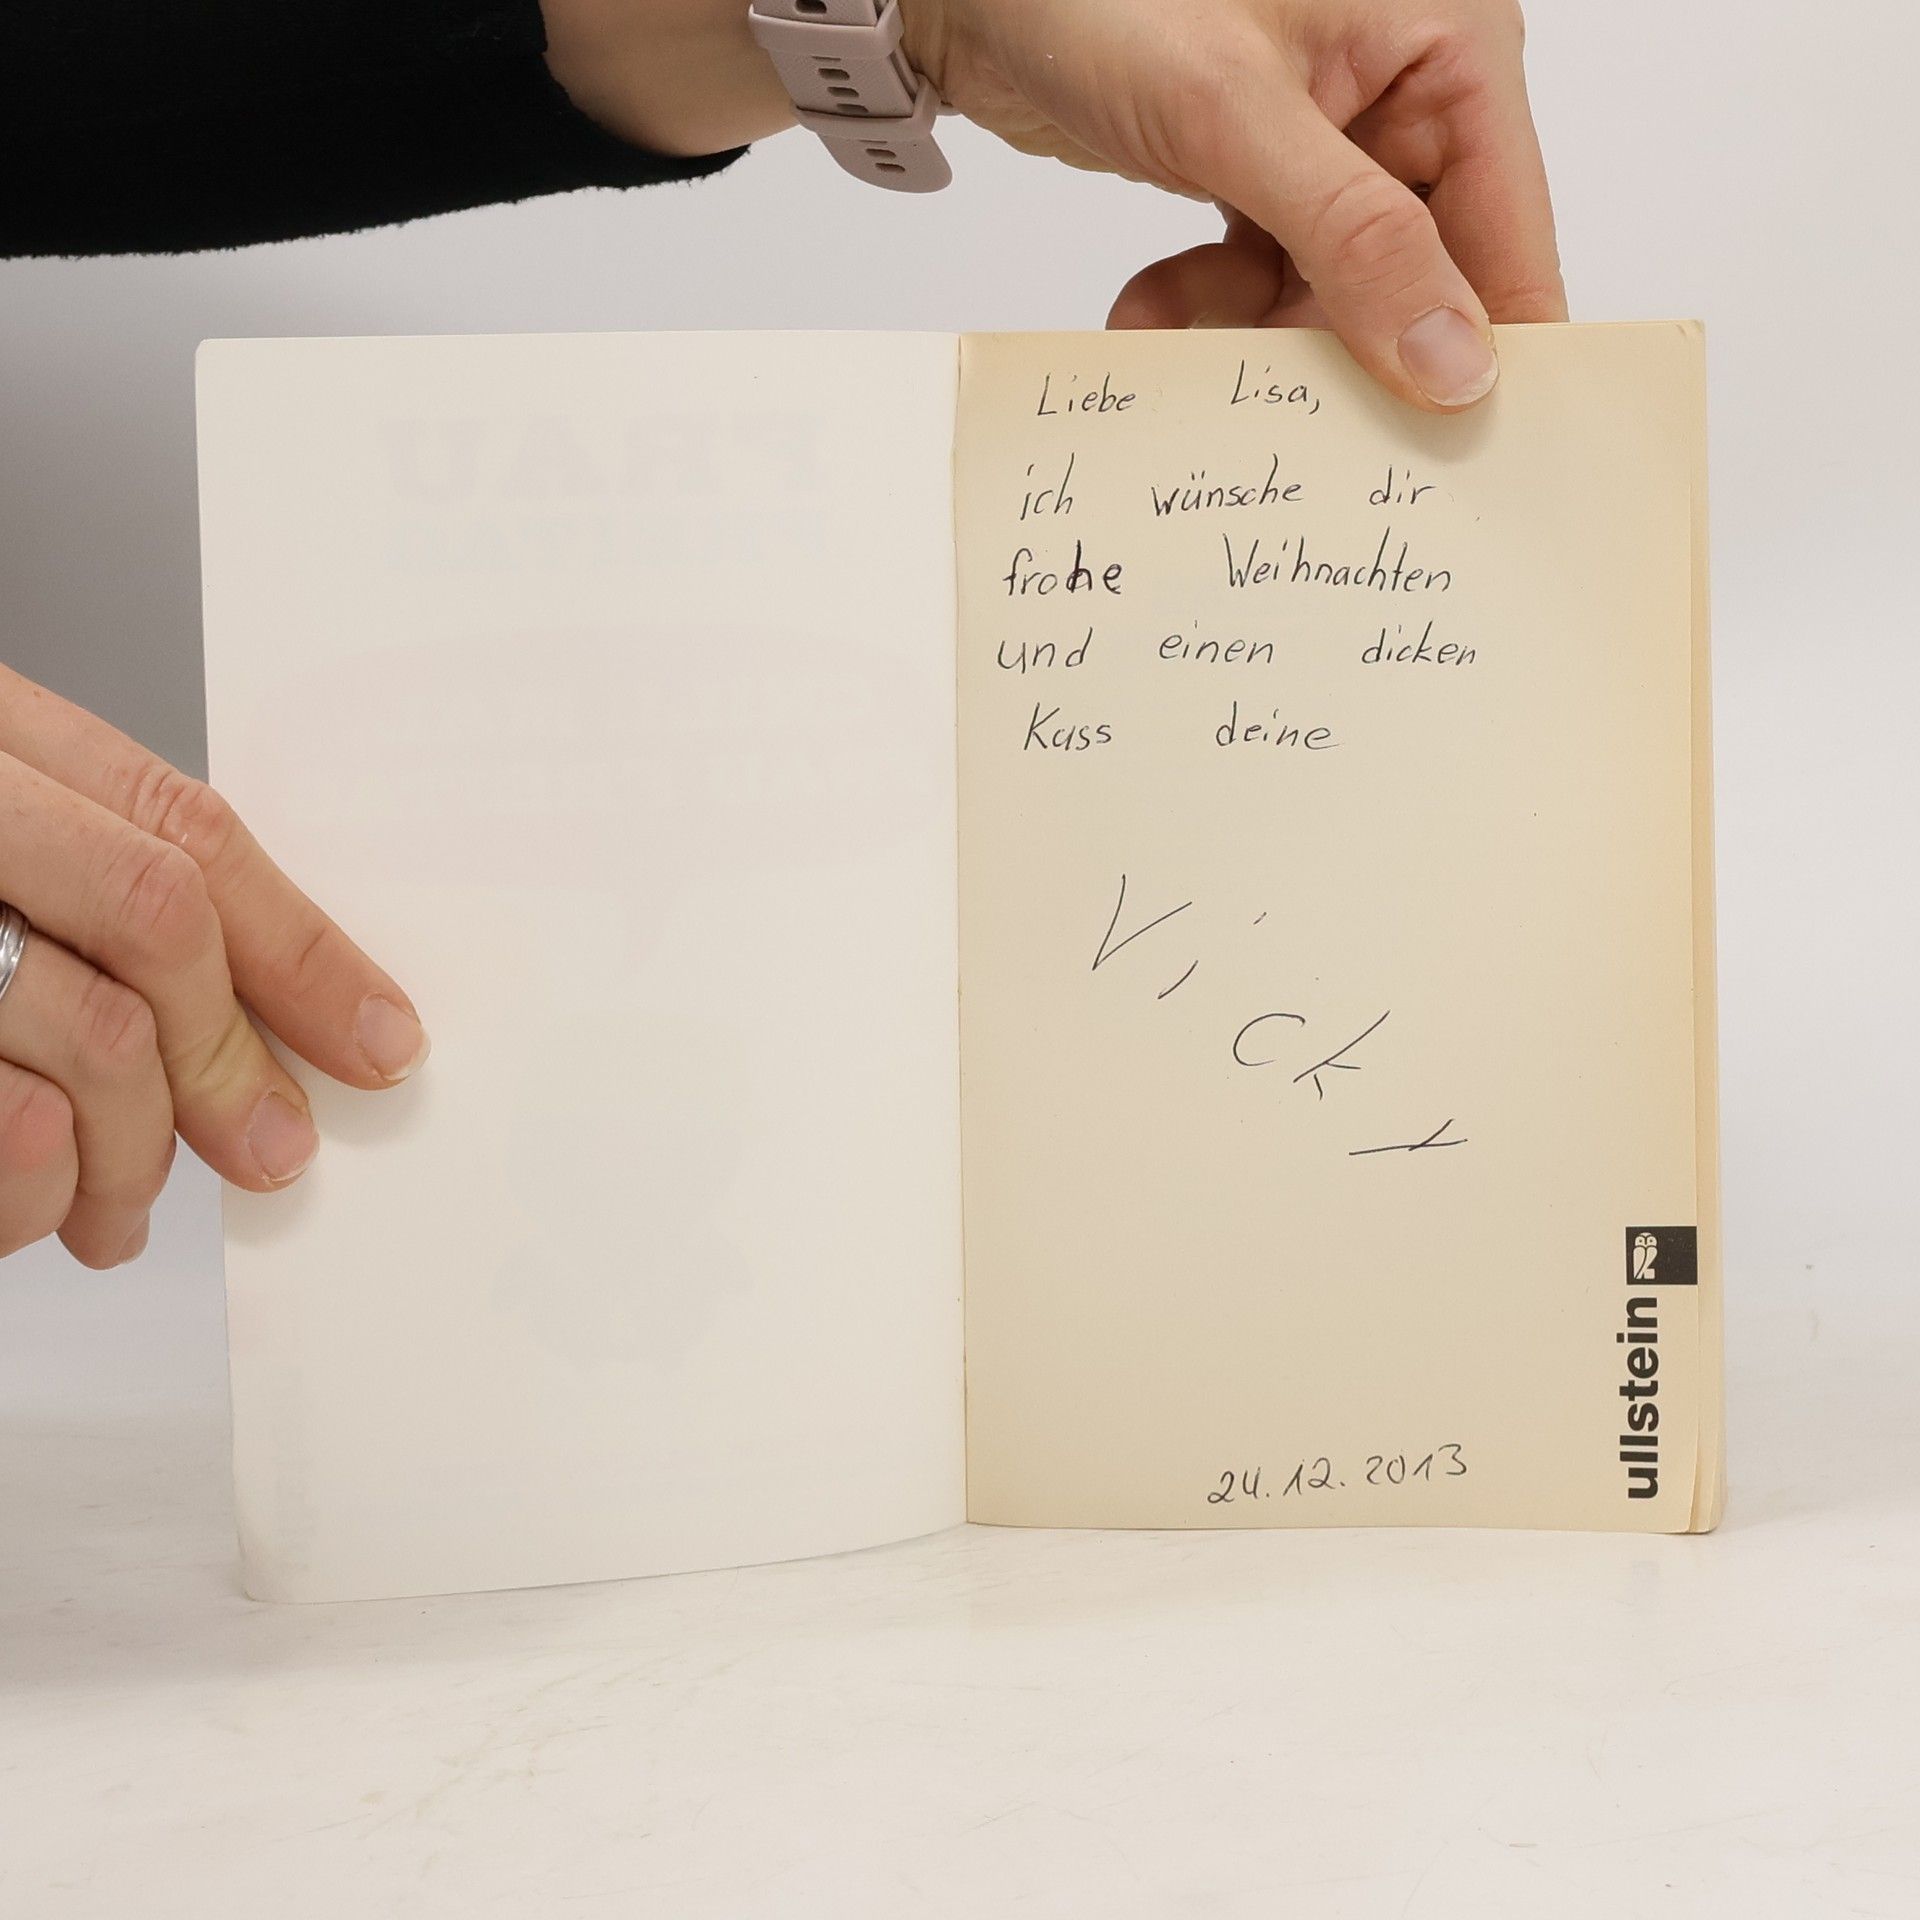 Liebe Lisa,
ich wünsche dir
frohe Weihnachten
und einen dicken
Kuss deine
Vicky
24.12.2013
ullstein